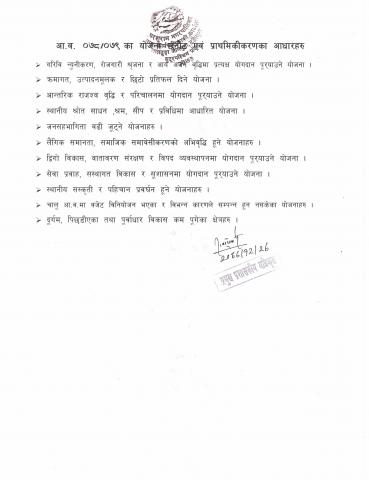 आ.व. ०७८/०७९ का योजना छनौट एवं प्राथमिकीकरणका आधारहरु
➢ गरिवि न्युनीकरण, रोजगारी श्रृजना र आय आर्जन वृद्धिमा प्रत्यक्ष योगदान पुर्‍याउने योजना ।
➢ क्रमागत, उत्पादनमुलक र छिटो प्रतिफल दिने योजना ।
➢ आन्तरिक राजश्व वृद्धि र परिचालनमा योगदान पुर्‍याउने योजना ।
➢ स्थानीय श्रोत साधन ,श्रम, सीप र प्रविधिमा आधारित योजना ।
➢ जनसहभागिता वढी जुट्ने योजनाहरु ।
➢ लैंगिक समानता, समाजिक समावेसीकरणको अभिवृद्धि हुने योजनाहरु ।
➢ दिगो विकास, वातावरण संरक्षण र विपद व्यवस्थापनमा योगदान पुर्‍याउने योजनाहरु ।
➢ सेवा प्रवाह, सस्थागत विकास र सुशासनमा योगदान पुर्‍याउने योजना ।
➢ स्थानीय संस्कृती र पहिचान प्रवर्धन हुने योजनाहरु ।
➢ चालु आ.व.मा वजेट विनियोजन भएका र विभन्न कारणले सम्पन्न हुन नसकेका योजनाहरु ।
➢ दुर्गम, पिछडीएका तथा पुर्वाधार विकास कम पुगेका क्षेत्रहरु ।
२०७७/१२/२६
प्रमुख प्रशासकीय अधिकृत